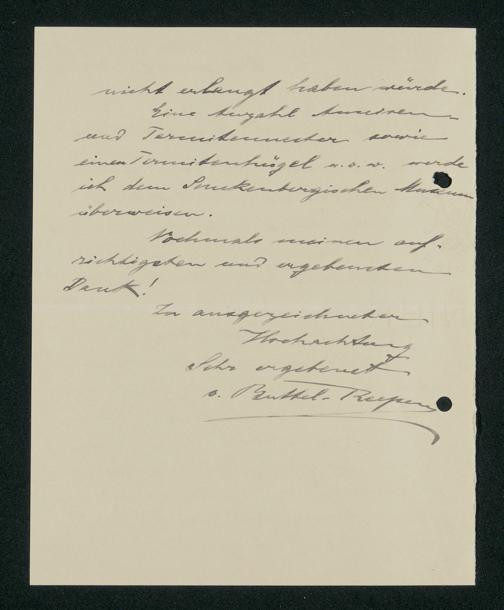 nicht erlangt haben würde.
Eine Anzahl Ameisen-
und Termitennester sowie
einen Termitenhügel u.s.w. werde
ich dem Senckenbergischen Museum
überweisen.
Nochmals meinen auf-
richtigsten und ergebensten
Dank!
In ausgezeichneter
Hochachtung
Sehr ergebenst
v. Buttel-Reepen